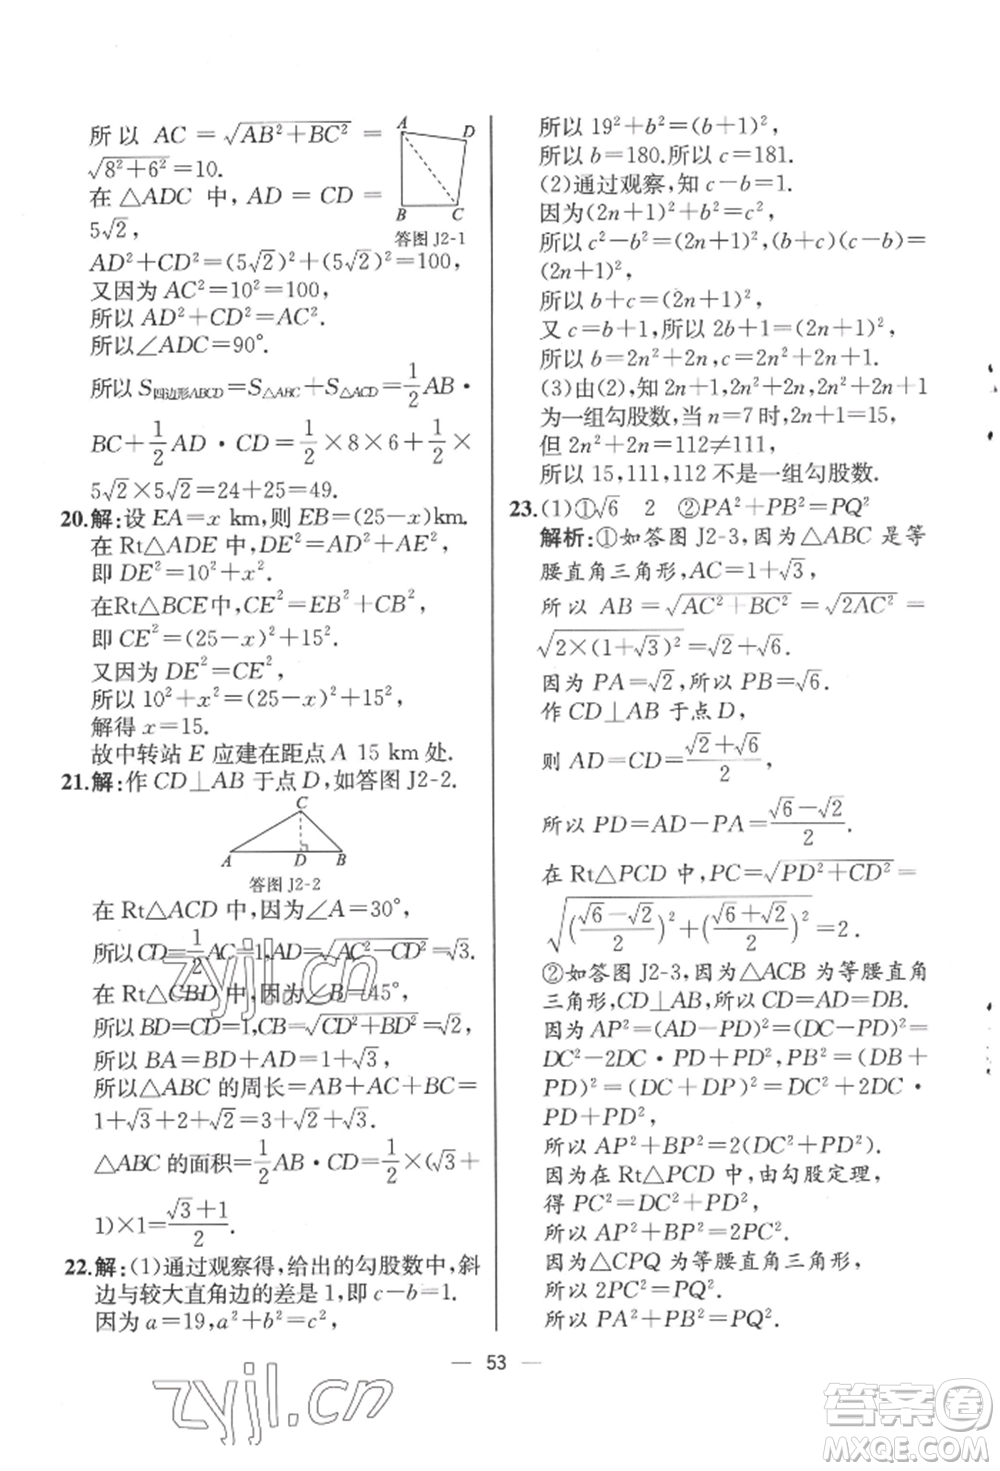 所以 AC=√(AB²+BC²)=
√(8²+6²)=10.
在△ADC 中,AD=CD=
5√2,
A
D
B
C
答图 J2-1
AD²+CD²=(5√2)²+(5√2)²=100,
又因为 AC²=10²=100,
所以 AD²+CD²=AC².
所以∠ADC=90°.
所以 S四边形ABCD=S△ABC+S△ACD=1/2 AB·
BC+1/2 AD·CD=1/2×8×6+1/2×
5√2×5√2=24+25=49.
20.解:设 EA=x km,则 EB=(25-x)km.
在 Rt△ADE 中,DE²=AD²+AE²,
即 DE²=10²+x².
在Rt△BCE中,CE²=EB²+CB²,
即 CE²=(25-x)²+15².
又因为 DE²=CE²,
所以 10²+x²=(25-x)²+15²,
解得 x=15.
故中转站 E 应建在距点 A 15 km 处.
21.解:作 CD⊥AB 于点 D,如答图 J2-2.
C
A
D
B
答图 J2-2
在 Rt△ACD 中,因为∠A=30°,
所以CD=1/2 AC=1,AD=√(AC²-CD²)=√3.
在 Rt△CBD 中,因为∠B=45°,
所以 BD=CD=1,CB=√(CD²+BD²)=√2,
所以 BA=BD+AD=1+√3,
所以△ABC 的周长=AB+AC+BC=
1+√3+2+√2=3+√2+√3.
△ABC 的面积=1/2 AB·CD=1/2×(√3+
1)×1=(√3+1)/2.
22.解:(1)通过观察得,给出的勾股数中,斜
边与较大直角边的差是 1,即 c-b=1.
因为 a=19,a²+b²=c²,
所以 19²+b²=(b+1)²,
所以 b=180.所以 c=181.
(2)通过观察,知 c-b=1.
因为(2n+1)²+b²=c²,
所以 c²-b²=(2n+1)²,(b+c)(c-b)=
(2n+1)²,
所以 b+c=(2n+1)²,
又 c=b+1,所以 2b+1=(2n+1)²,
所以 b=2n²+2n,c=2n²+2n+1.
(3)由(2),知 2n+1,2n²+2n,2n²+2n+1
为一组勾股数,当 n=7 时,2n+1=15,
但 2n²+2n=112≠111,
所以 15,111,112 不是一组勾股数.
23.(1)①√6 2 ②PA²+PB²=PQ²
解析:①如答图 J2-3,因为△ABC 是等
腰直角三角形,AC=1+√3,
所以 AB=√(AC²+BC²)=√(2AC²)=
√(2×(1+√3)²)=√2+√6.
因为 PA=√2,所以 PB=√6.
作 CD⊥AB 于点 D,
则 AD=CD=(√2+√6)/2,
所以 PD=AD-PA=(√6-√2)/2.
在 Rt△PCD 中,PC=√(PD²+CD²)=
√(((√6-√2)/2)²+((√6+√2)/2)²)=2.
②如答图 J2-3,因为△ACB 为等腰直角
三角形,CD⊥AB,所以 CD=AD=DB.
因为 AP²=(AD-PD)²=(DC-PD)²=
DC²-2DC·PD+PD²,PB²=(DB+
PD)²=(DC+PD)²=DC²+2DC·
PD+PD²,
所以 AP²+BP²=2(DC²+PD²).
因为在 Rt△PCD 中,由勾股定理,
得 PC²=DC²+PD²,
所以 AP²+BP²=2PC².
因为△CPQ 为等腰直角三角形,
所以 2PC²=PQ².
所以 PA²+PB²=PQ².
— 53 —
zyjl.cn
zyjl.cn
答案圈
MXQE.COM